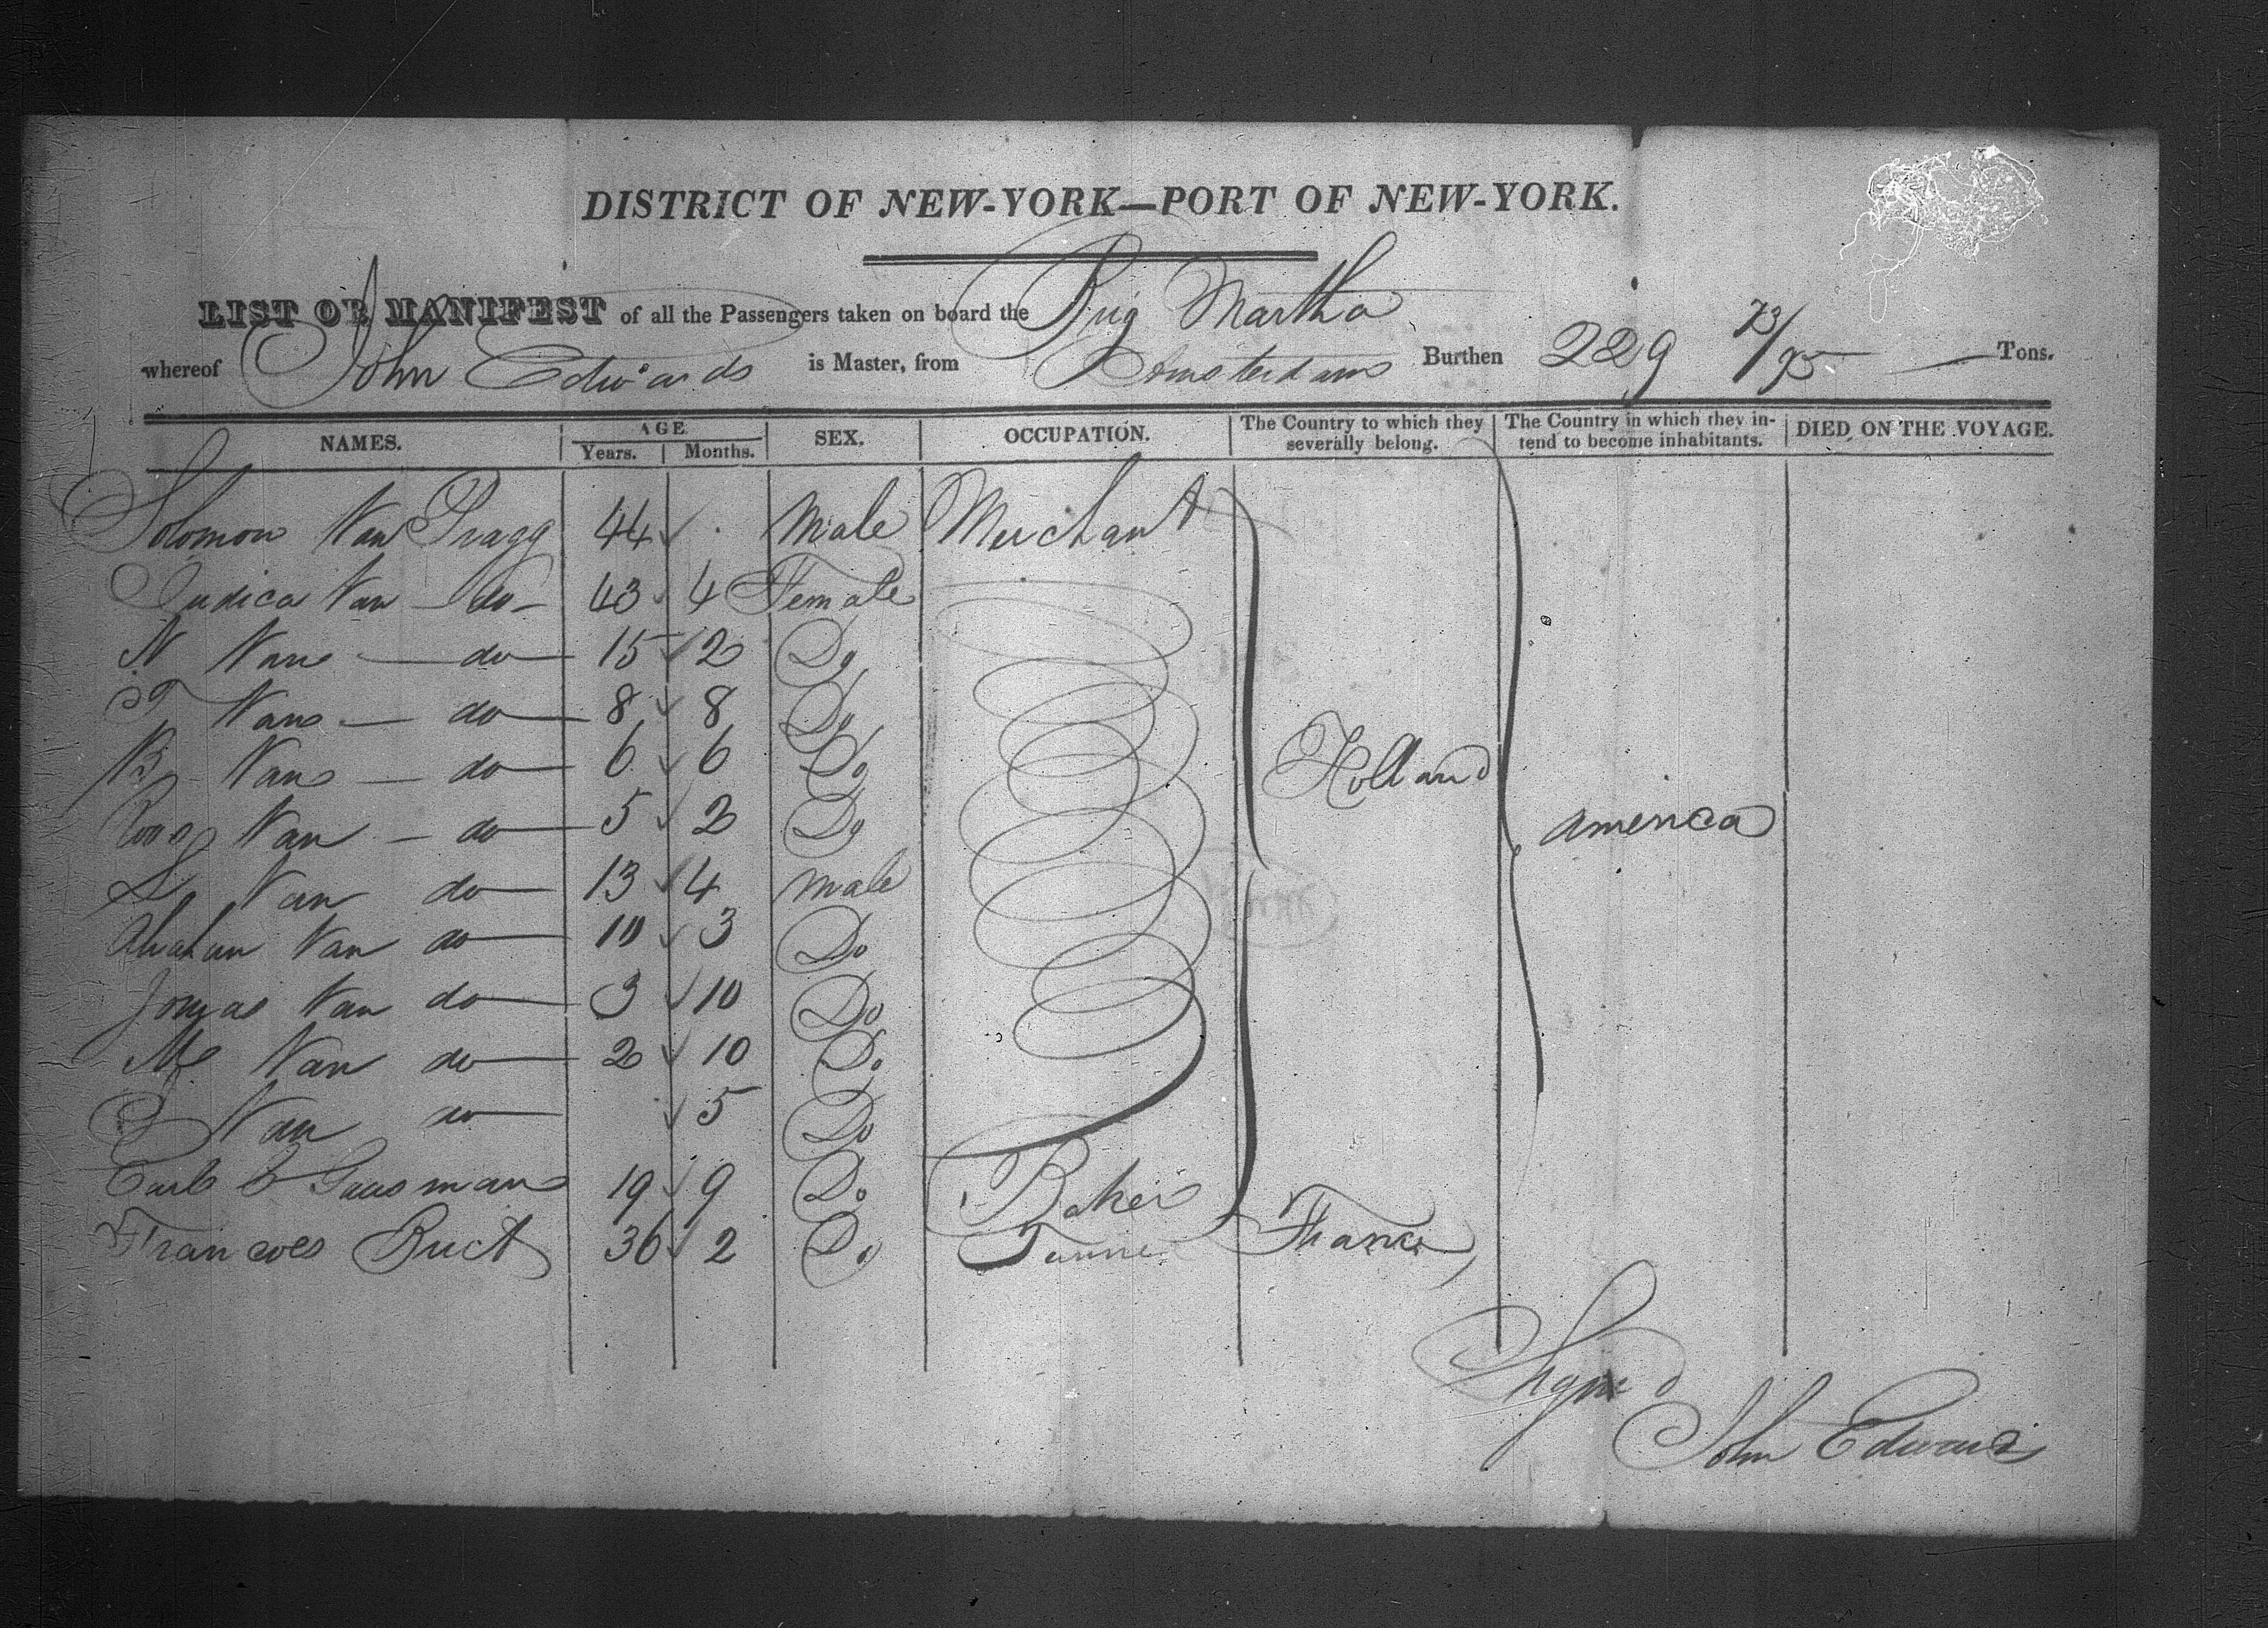 DISTRICT OF NEW-YORK—PORT OF NEW-YORK.
LIST OR MANIFEST of all the Passengers taken on board the Brig Martha
whereof John Edwards is Master, from Amsterdam Burthen 229 73/95 Tons.
NAMES. AGE Years. Months. SEX. OCCUPATION. The Country to which they severally belong. The Country in which they intend to become inhabitants. DIED ON THE VOYAGE.
Solomon Van Pragg 44 Male Merchant
Judica Van do 43 4 Female
N Van do 15 2 Do
Van do 8 8 Do
B Van do 6 6 Do
Van do 5 2 Do
Holland
America
S Van do 13 4 male
Abraham Van do 10 3 Do
Jonas Van do 3 10 Do
M Van do 2 10 Do
Van do 5 Do
Carl 19 9 Do Baker
Francois 36 2 Do Tanner France
Signed
John Edwards